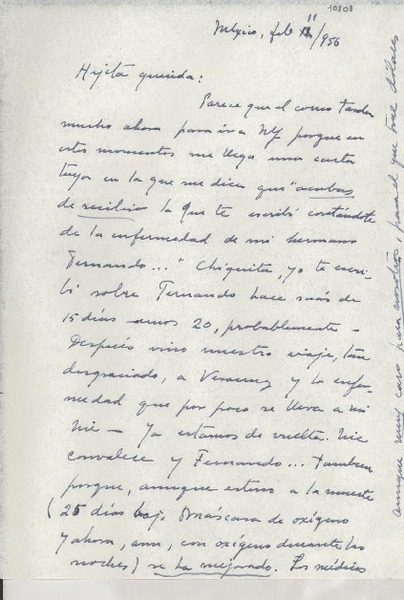 10808
México, feb 11/956
Hijita querida:
Parece que el correo tarda
mucho ahora para ir a NY porque en
estos momentos me llega una carta
tuya en la que me dices que "acabas
de recibir la que te escribí contándote
de la enfermedad de mi hermano
Fernando..." Chiquita, yo te escri-
bí sobre Fernando hace más de
15 días unos 20, probablemente -
Después vino nuestro viaje, tan
desgraciado, a Veracruz y la enfer-
medad que por poco se lleva a mi
- Ya estamos de vuelta.
convalece y Fernando... también
porque, aunque estuvo a la muerte
(25 días bajo máscara de oxígeno
y ahora, aun, con oxígeno durante las
noches) se ha mejorado. Los médicos
aunque muy caro para nosotros, para el que trae dólares